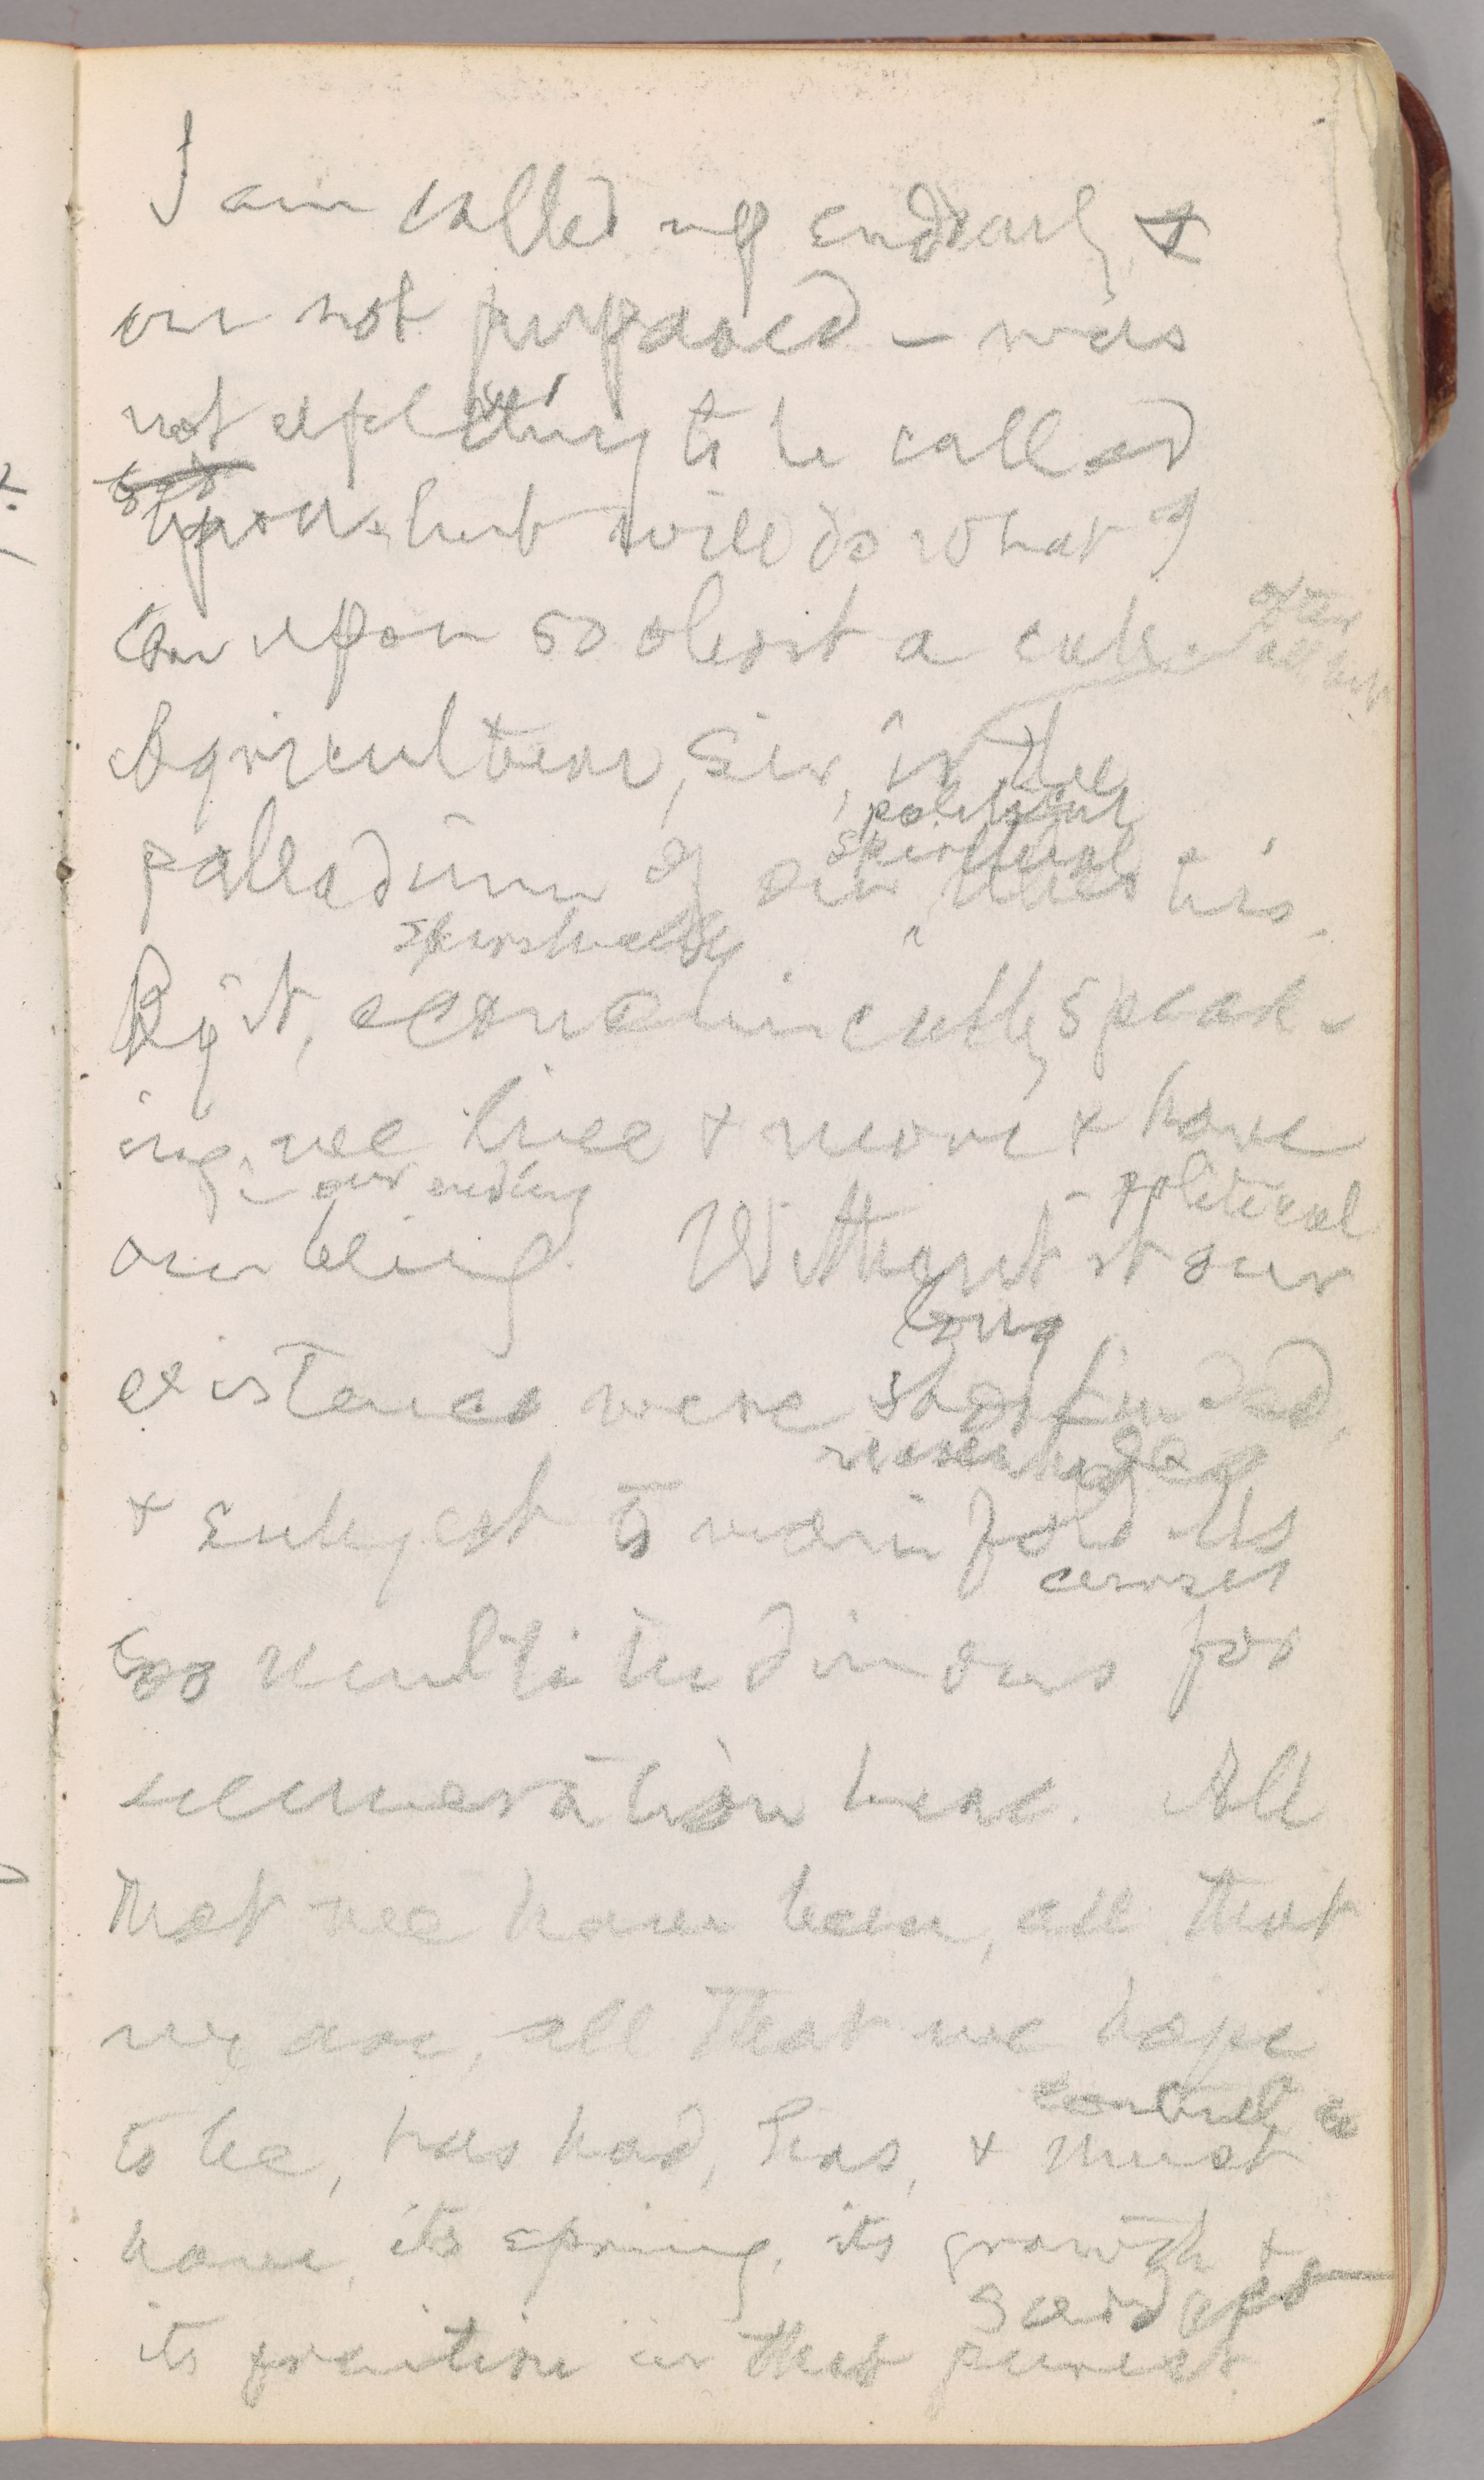 I am called up suddenly, &
am not prepared – was
not expecting to be called
upon, but will do what I
can upon so short a call.
Agriculture, Sir, is the
political
palladium of our liberties.
spiritual
spiritually
By it, economically speak-
ing, we live & move & have
our ending
political
our being. Without it our
long
existence were short indeed,
& subject to manifold ills
too multitudinous for
enumeration here. All
that we have been, all that
we are, all that we hope
to be, has had, has, & must
have, its spring, its growth &
its fruition in that purest